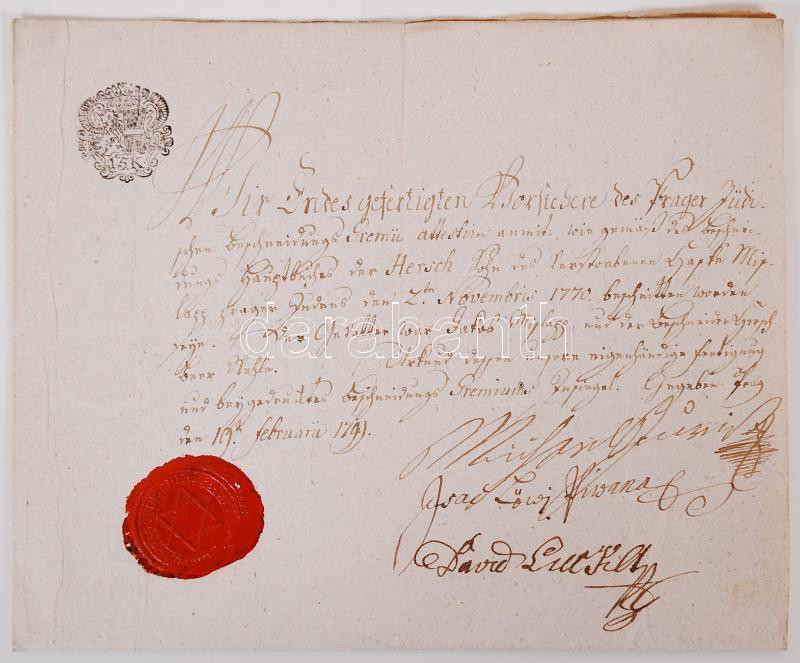 15 K
Wir Endes gefertigten Vorstehere des Prager Jüdi-
schen Beschneidungs Gremii attestirn anmit: wie gemäß des Beschnei-
dungs Hauptbuches der Hersch Sohn des verstorbenen
Prager Judens den 2ten Novembris 1770 beschnitten worden
seye. Der Gevatter war Jakob und der Beschneider Hirsch
Beer Urkund dessen unsere eigenhändige Fertigung
und beygedrucktes Beschneidungs Gremiums Insiegel. Gegeben Prag
den 19ten Februarii 1791.
Isac Löwi
David
darabanth